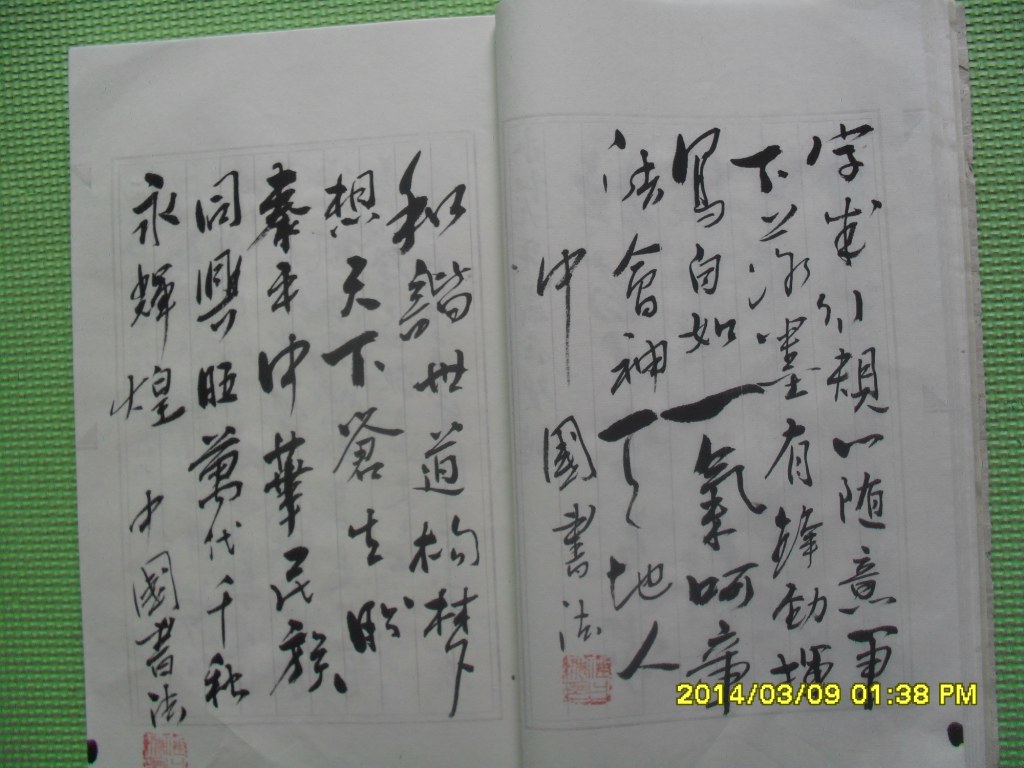 字成行親心随意軍
下并添墨有鋒劲揮
寫自如一氣呵章
法會神天地人
中國書法
和諧世道构梦
想天下苍生盼
泰平中華民族
同興旺萬代千秋
永輝煌 中國書法
2014/03/09 01:38 PM